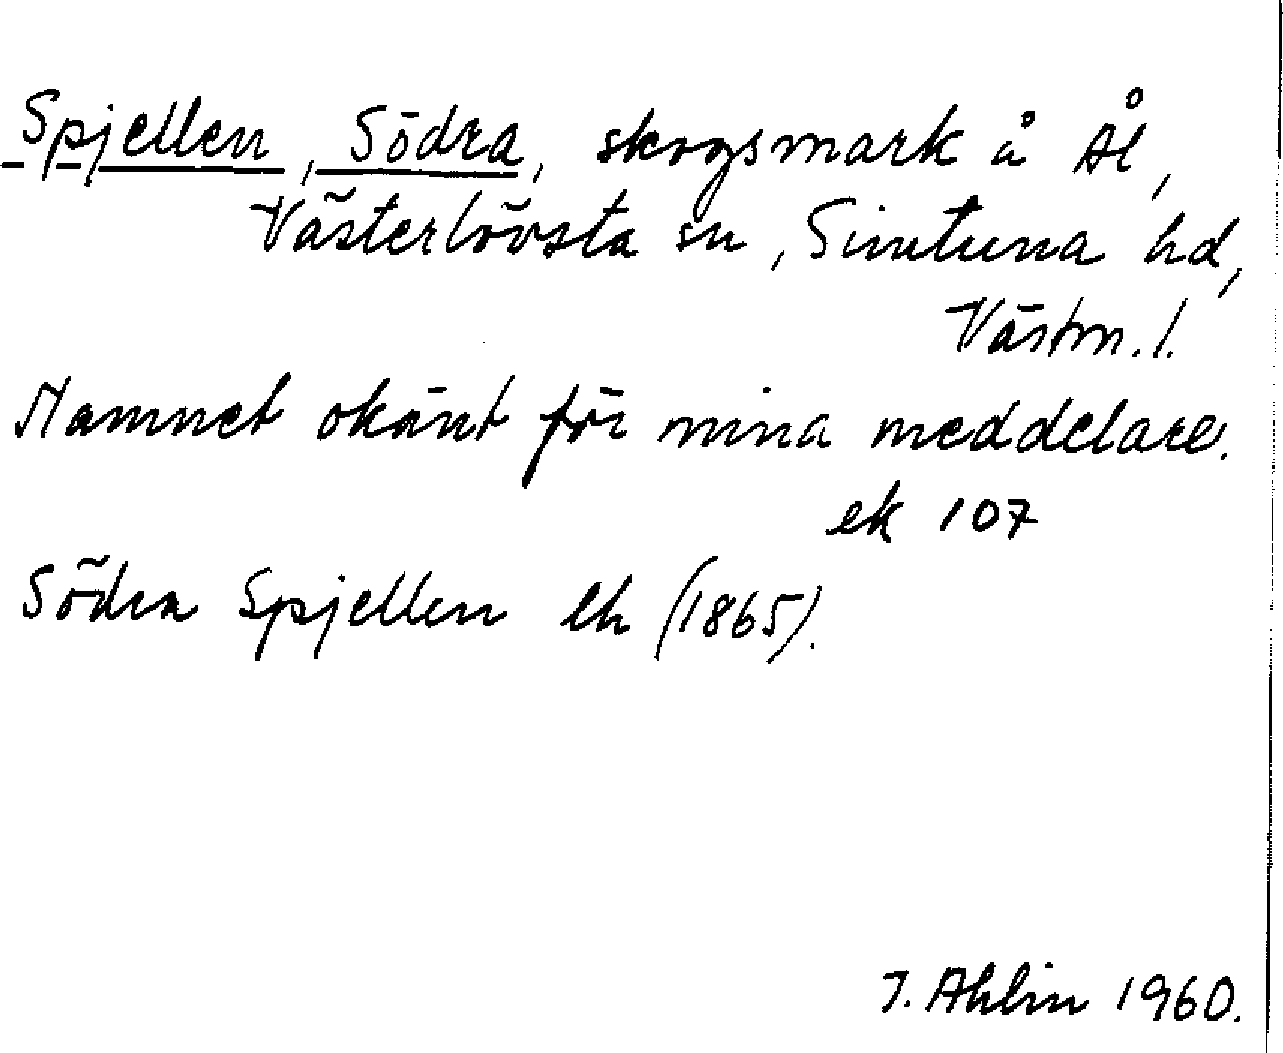 Spjellen, Södra, skogsmark å Ål,
Västerlövsta sn, Simtuna hd,
Västm. l.
Namnet okänt för mina meddelare.
ek 107
Södra Spjellen lk (1865).
I. Ahlin 1960.